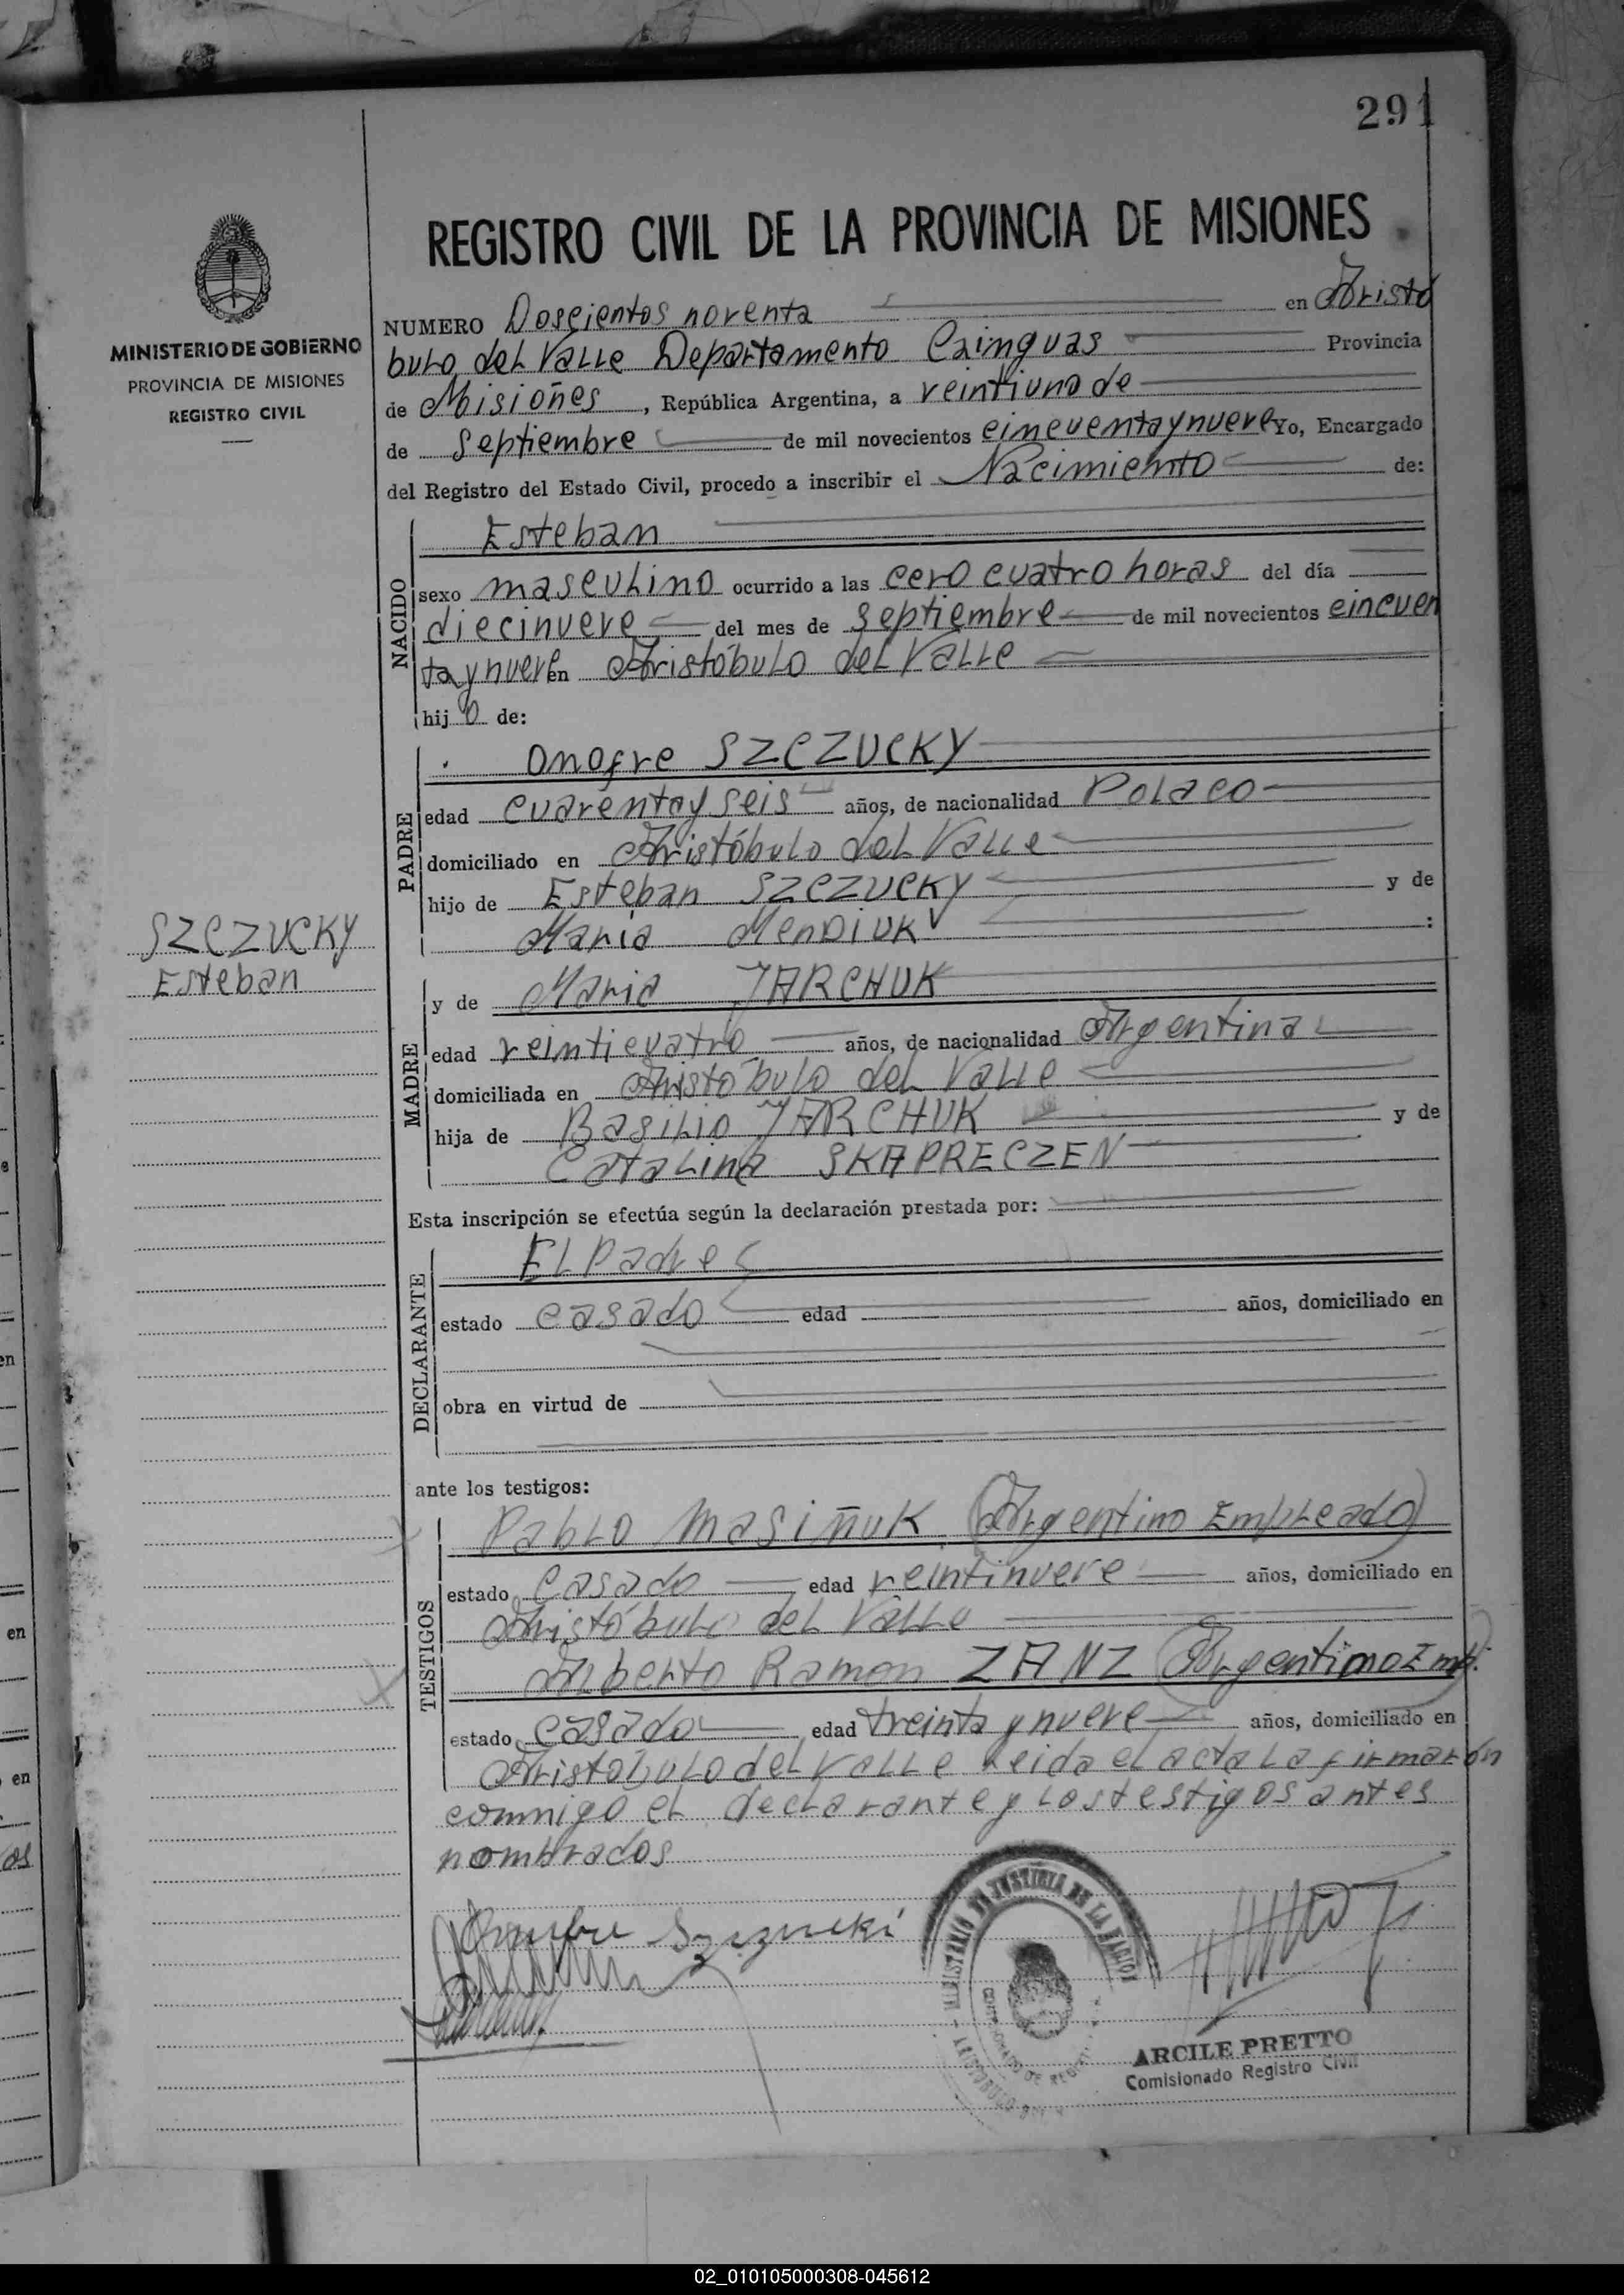 291
REGISTRO CIVIL DE LA PROVINCIA DE MISIONES
MINISTERIO DE GOBIERNO
PROVINCIA DE MISIONES
REGISTRO CIVIL
NUMERO Doscientos noventa en Aristó
bulo del Valle Departamento Cainguas Provincia
de Misiones, República Argentina, a veintiuno de
de Septiembre de mil novecientos cincuenta y nueve Yo, Encargado
del Registro del Estado Civil, procedo a inscribir el Nacimiento de:
NACIDO
Esteban
sexo masculino ocurrido a las cero cuatro horas del día
diecinueve del mes de Septiembre de mil novecientos cincuen
ta y nueve en Aristóbulo del Valle
hijo de:
PADRE
Onofre SZCZUCKY
edad cuarenta y seis años, de nacionalidad Polaco
domiciliado en Aristóbulo del Valle
hijo de Esteban SZCZUCKY y de
Maria Mendiuk :
SZCZUCKY
Esteban
MADRE
y de Maria JARCHUK
edad veinticuatro años, de nacionalidad Argentina
domiciliada en Aristóbulo del Valle
hija de Basilio JARCHUK y de
Catalina SKAPRECZEN
Esta inscripción se efectúa según la declaración prestada por:
DECLARANTE
El Padre
estado casado edad años, domiciliado en
obra en virtud de
ante los testigos:
TESTIGOS
Pablo Masiñuk (Argentino Empleado)
estado Casado edad veintinueve años, domiciliado en
Aristóbulo del Valle
Alberto Ramon ZANZ (Argentino Emp.)
estado Casado edad treinta y nueve años, domiciliado en
Aristóbulo del Valle Leida el acta La firmarón
conmigo el declarante y los testigos antes
nombrados
MINISTERIO DE JUSTICIA DE LA NACION
ARCILE PRETTO
Comisionado Registro Civil
02_010105000308-045612